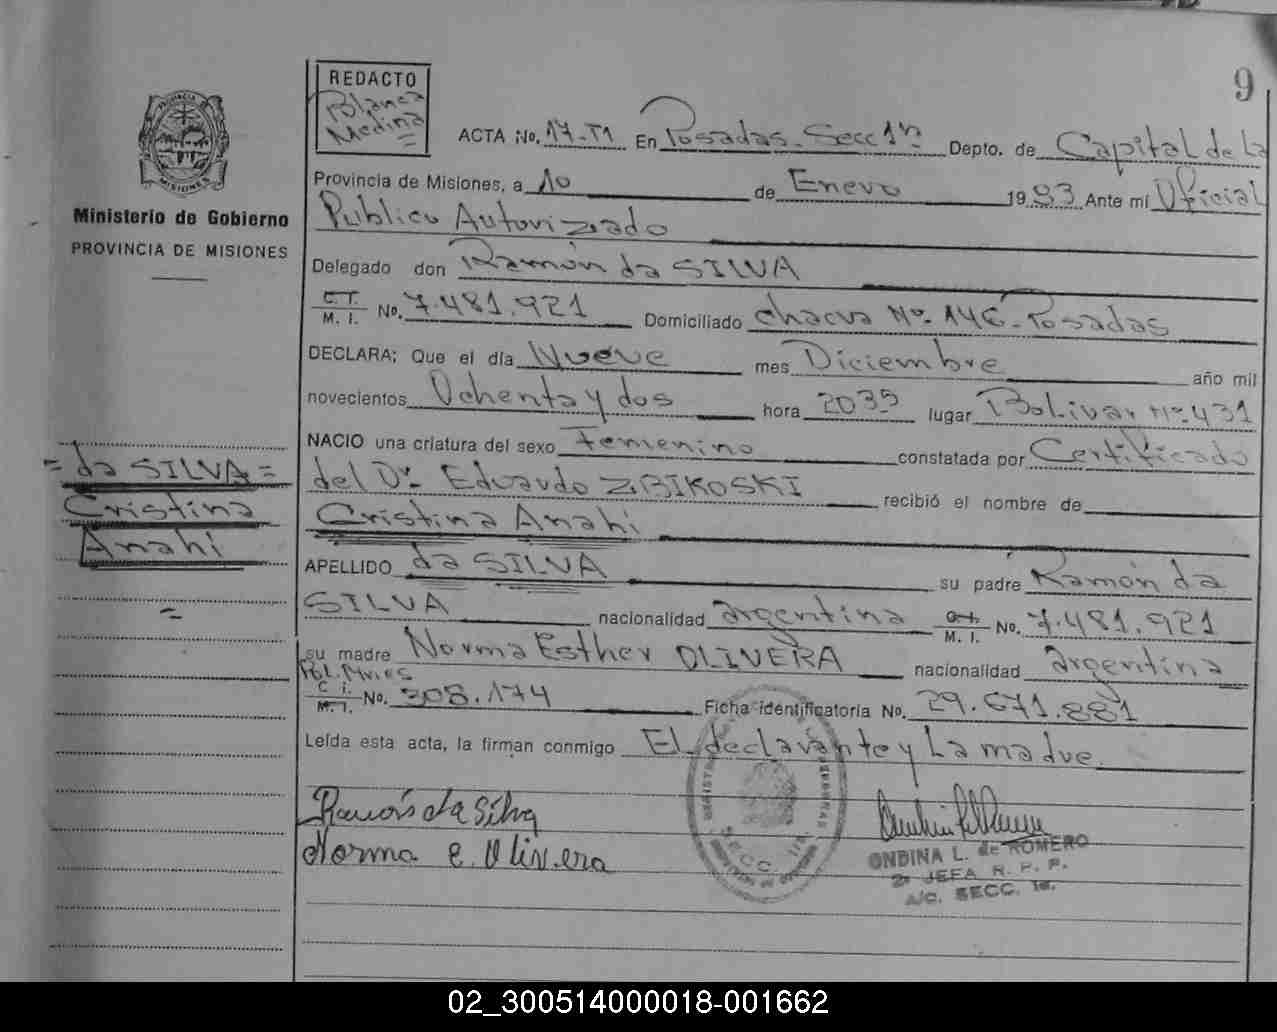 9
REDACTO
Blanca
Medina
ACTA No. 17-T1 En Posadas-Secc 1ª Depto. de Capital de La
Provincia de Misiones, a 10 de Enero 1983 Ante mi Oficial
Publico Autorizado
Delegado don Ramón da SILVA
C.I.
M. I. No. 7.481.921 Domiciliado chacra Nº 146-Posadas
DECLARA; Que el día Nueve mes Diciembre año mil
novecientos Ochenta y dos hora 2035 lugar Bolivar Nº 431
NACIO una criatura del sexo Femenino constatada por Certificado
del Dr. Eduardo ZBIKOSKI recibió el nombre de
Cristina Anahi
APELLIDO da SILVA su padre Ramón da
SILVA nacionalidad argentina C.I. M. I. No. 7.481.921
su madre Norma Esther OLIVERA nacionalidad argentina
Pol. Mnes
C. I.
M. I. No. 308.174 Ficha identificatoria No. 29.671.881
Leída esta acta, la firman conmigo El declarante y La madre.
Ramón da Silva
Norma E. Olivera
ONDINA L. de ROMERO
2ª JEFA R. P. P.
A/C. SECC. 1a.
SECC. 1ª
PROVINCIA DE
MISIONES
Ministerio de Gobierno
PROVINCIA DE MISIONES
= da SILVA =
Cristina
Anahi
=
02_300514000018-001662